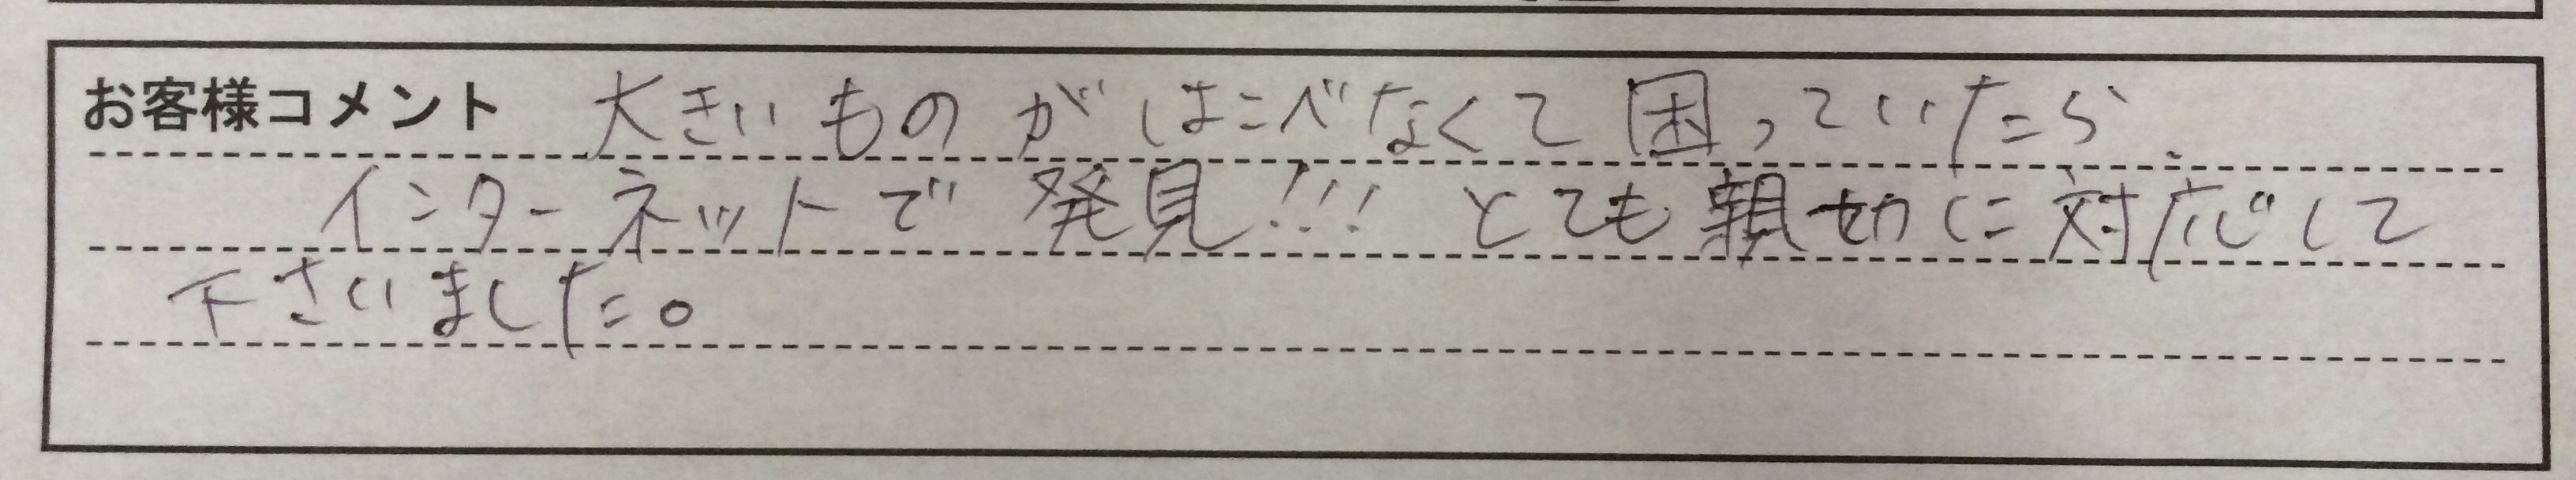 お客様コメント 大きいものがはこべなくて困っていたら、
インターネットで発見!!! とても親切に対応して
下さいました。